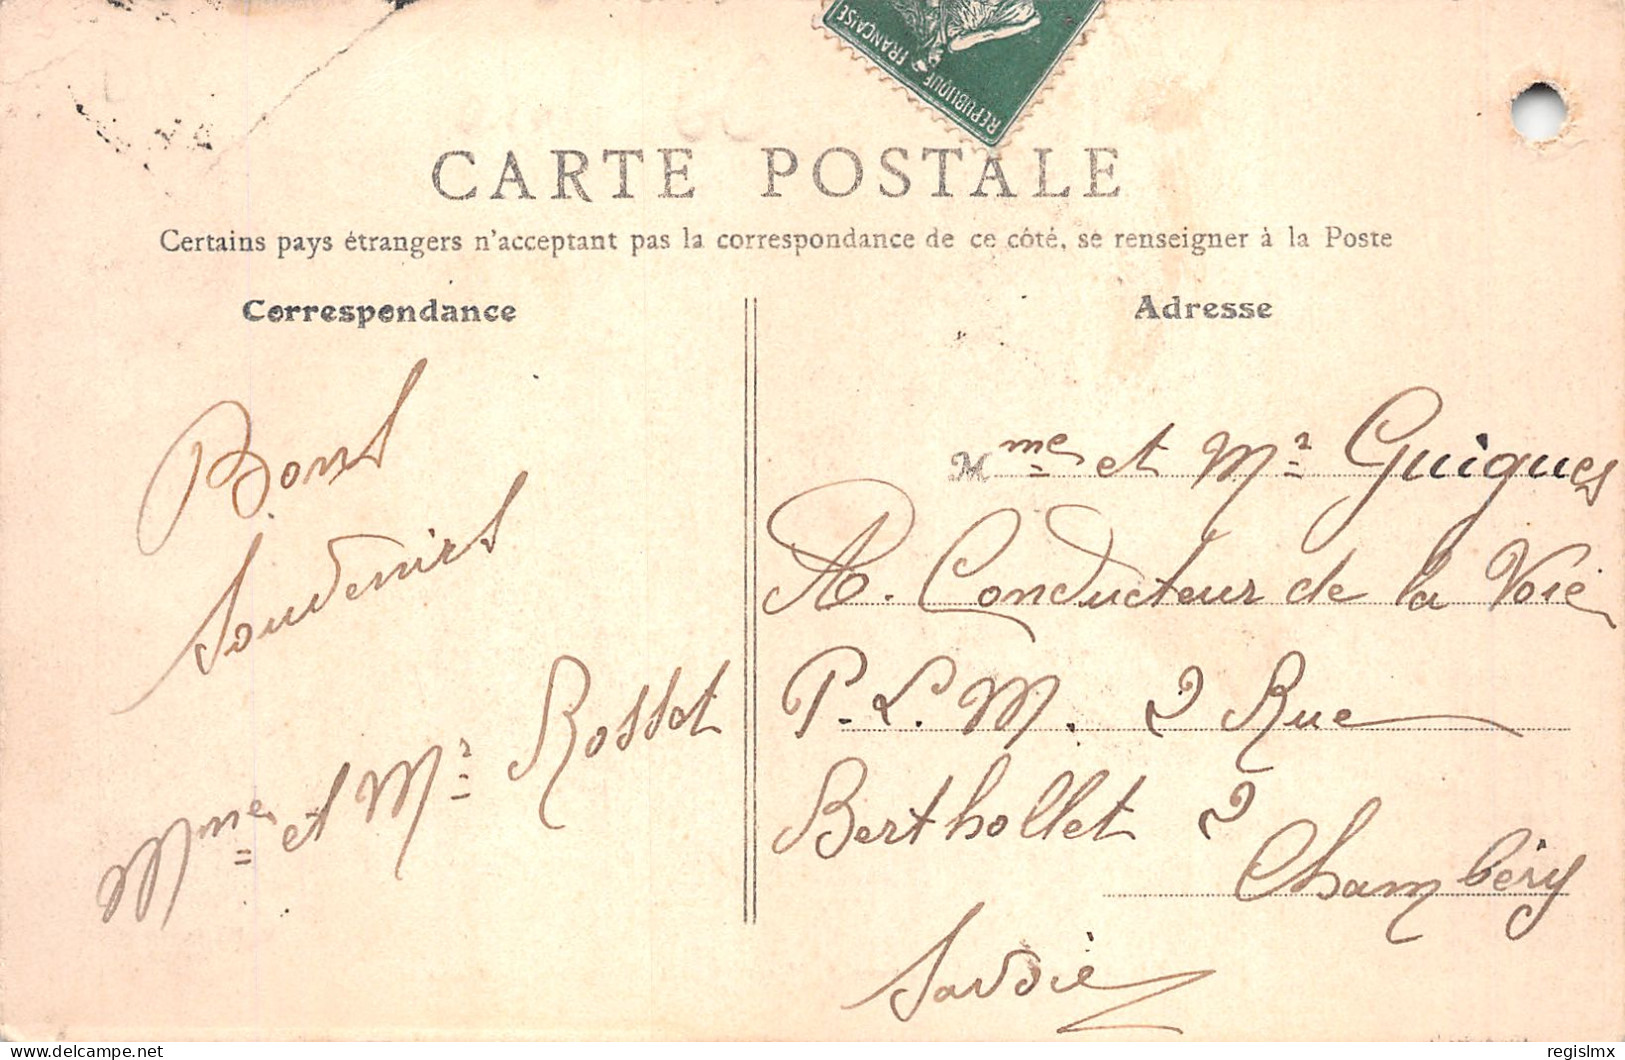 REPUBLIQUE FRANÇAISE
CARTE POSTALE
Certains pays étrangers n'acceptant pas la correspondance de ce côté, se renseigner à la Poste
Correspondance
Bons
Souvenirs
Mme et Mr Rosset
Adresse
Mme et Mr Guigues
A. Conducteur de la Voie
P. L. M. 2 Rue
Berthollet 2
Chambéry
Savoie
delcampe.net
regislmx